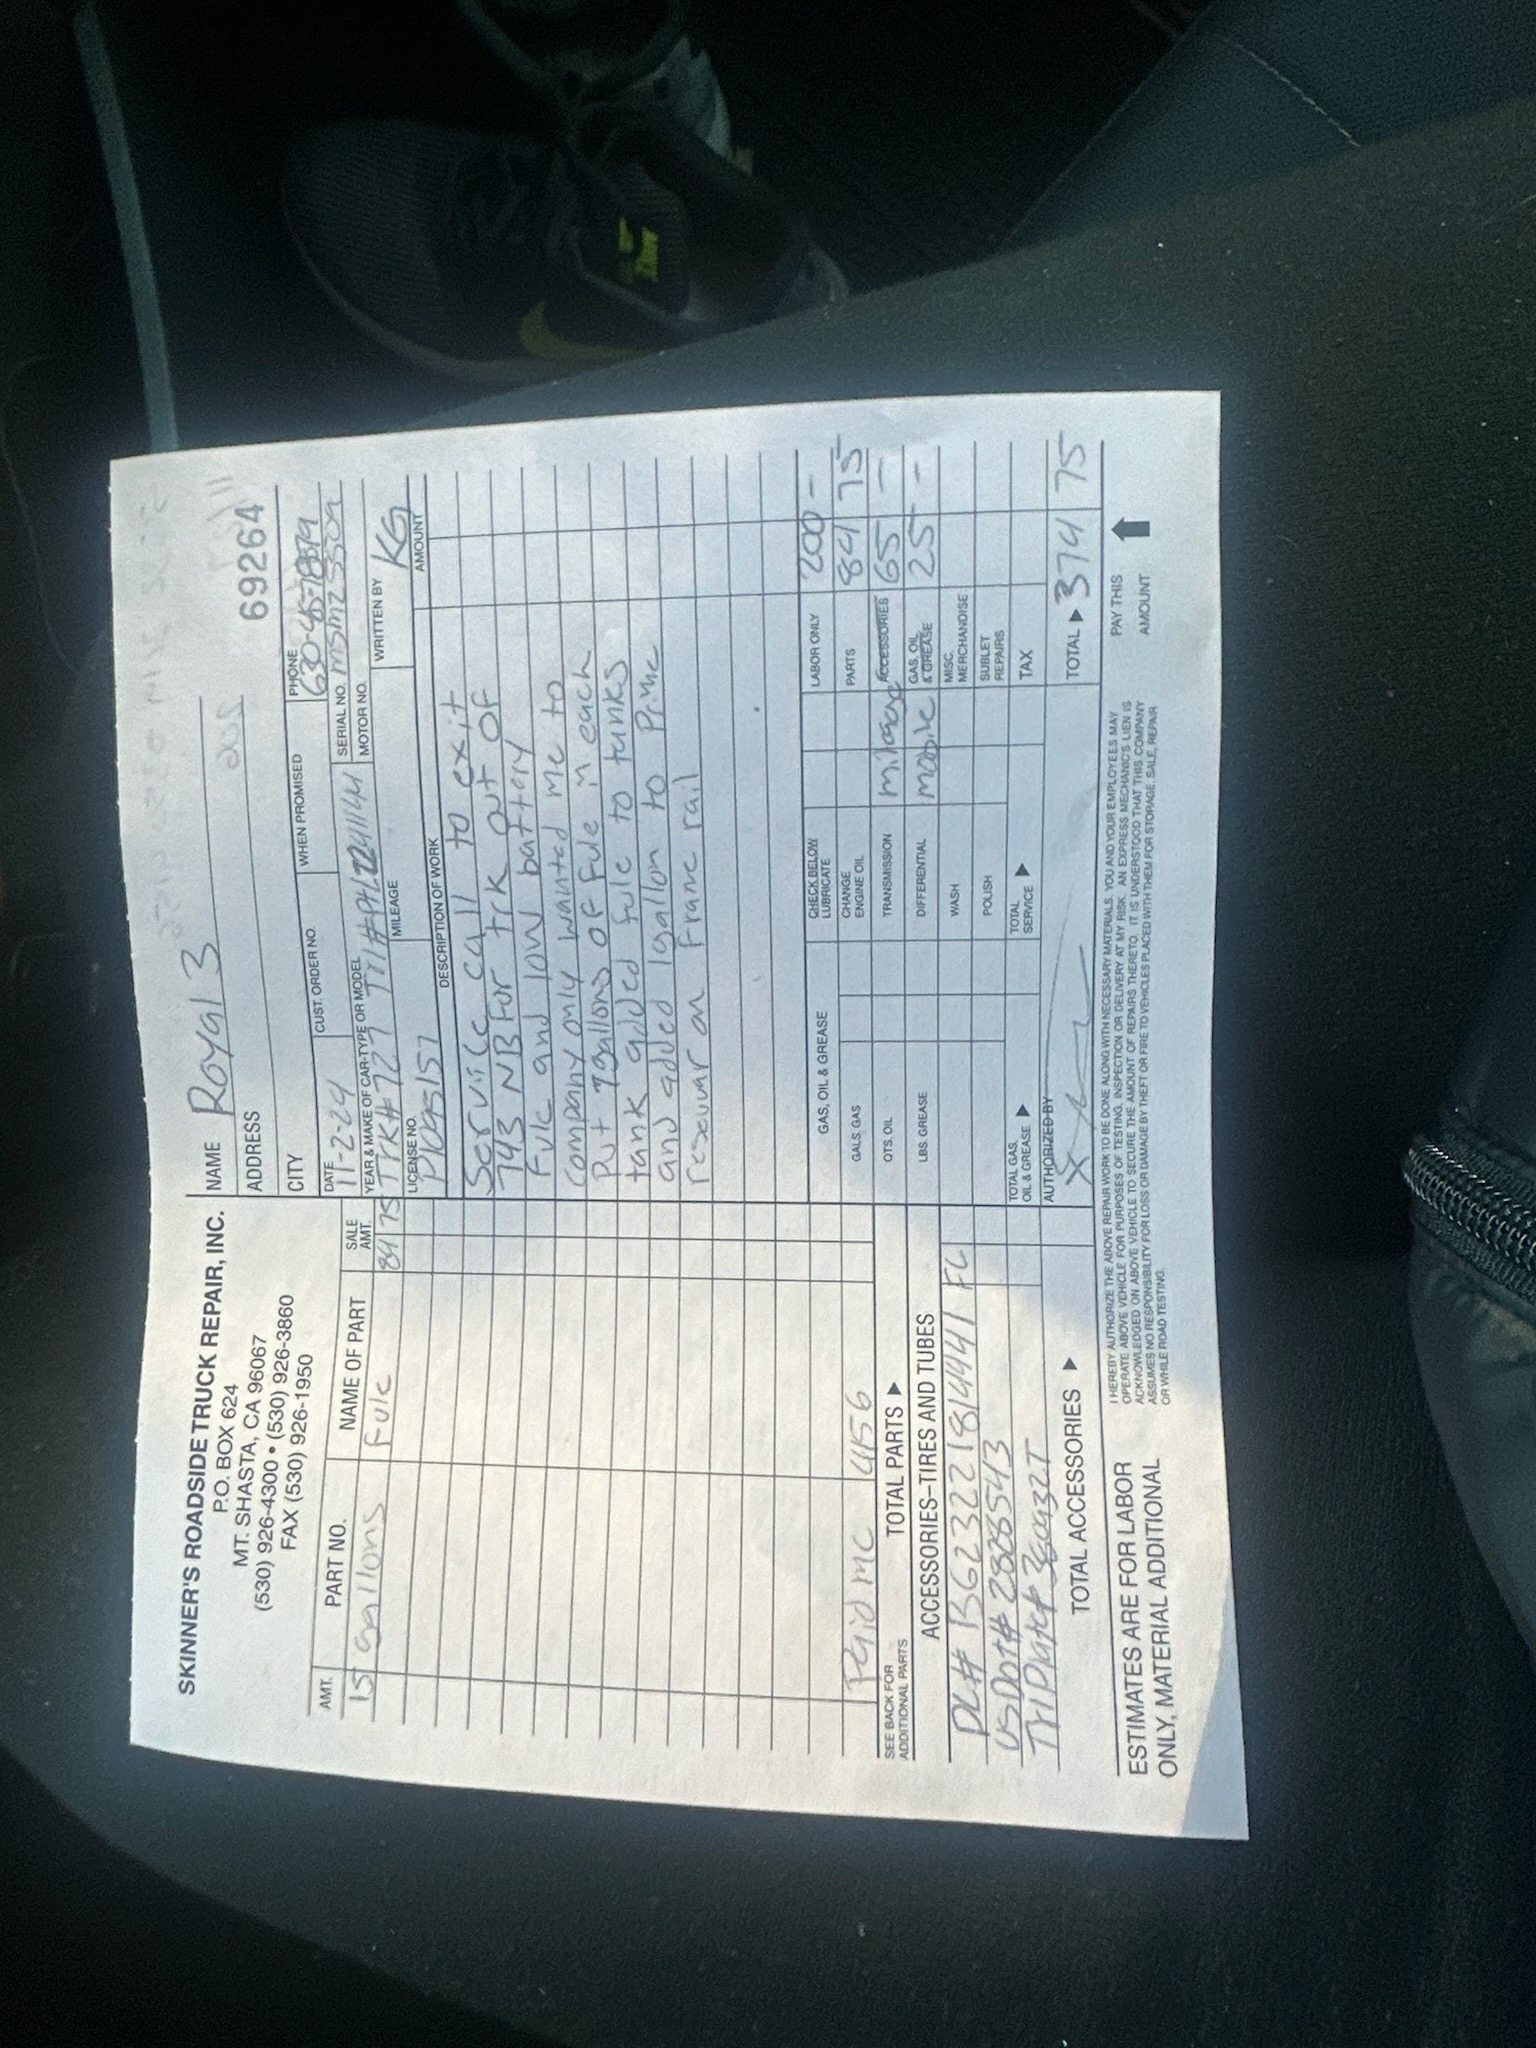 SKINNER'S ROADSIDE TRUCK REPAIR, INC.
P.O. BOX 624
MT. SHASTA, CA 96067
(530) 926-4300 • (530) 926-3860
FAX (530) 926-1950
NAME Royal 3
ADDRESS
69264
CITY
CUST. ORDER NO.
WHEN PROMISED
PHONE
DATE 11-2-24
SERIAL NO.
YEAR & MAKE OF CAR-TYPE OR MODEL
Trk# 727
MOTOR NO.
LICENSE NO.
MILEAGE
WRITTEN BY KG
AMT.
PART NO.
NAME OF PART
SALE AMT.
15 gallons Fule 84 75
DESCRIPTION OF WORK
AMOUNT
Service call to exit
743 NB For trk out of
Fule and low battory
company only wanted me to
Put 7gallons of Fule in each
tank added fule to tanks
and added 1gallon to Prime
on Frame rail
Paid MC 4456
SEE BACK FOR
ADDITIONAL PARTS
TOTAL PARTS
ACCESSORIES–TIRES AND TUBES
USDot# 2885543
TOTAL ACCESSORIES
GAS, OIL & GREASE
GALS. GAS
QTS. OIL
LBS. GREASE
TOTAL GAS,
OIL & GREASE
CHECK BELOW
LUBRICATE
CHANGE
ENGINE OIL
TRANSMISSION
DIFFERENTIAL
WASH
POLISH
TOTAL
SERVICE
LABOR ONLY 200 –
PARTS 84 75
milage ACCESSORIES 65 –
mobile GAS, OIL & GREASE 25 –
MISC. MERCHANDISE
SUBLET REPAIRS
TAX
AUTHORIZED BY X
TOTAL 374 75
ESTIMATES ARE FOR LABOR
ONLY, MATERIAL ADDITIONAL
I HEREBY AUTHORIZE THE ABOVE REPAIR WORK TO BE DONE ALONG WITH NECESSARY MATERIALS. YOU AND YOUR EMPLOYEES MAY
OPERATE ABOVE VEHICLE FOR PURPOSES OF TESTING, INSPECTION OR DELIVERY AT MY RISK. AN EXPRESS MECHANIC'S LIEN IS
ACKNOWLEDGED ON ABOVE VEHICLE TO SECURE THE AMOUNT OF REPAIRS THERETO. IT IS UNDERSTOOD THAT THIS COMPANY
ASSUMES NO RESPONSIBILITY FOR LOSS OR DAMAGE BY THEFT OR FIRE TO VEHICLES PLACED WITH THEM FOR STORAGE, SALE, REPAIR
OR WHILE ROAD TESTING.
PAY THIS
AMOUNT
NIKE